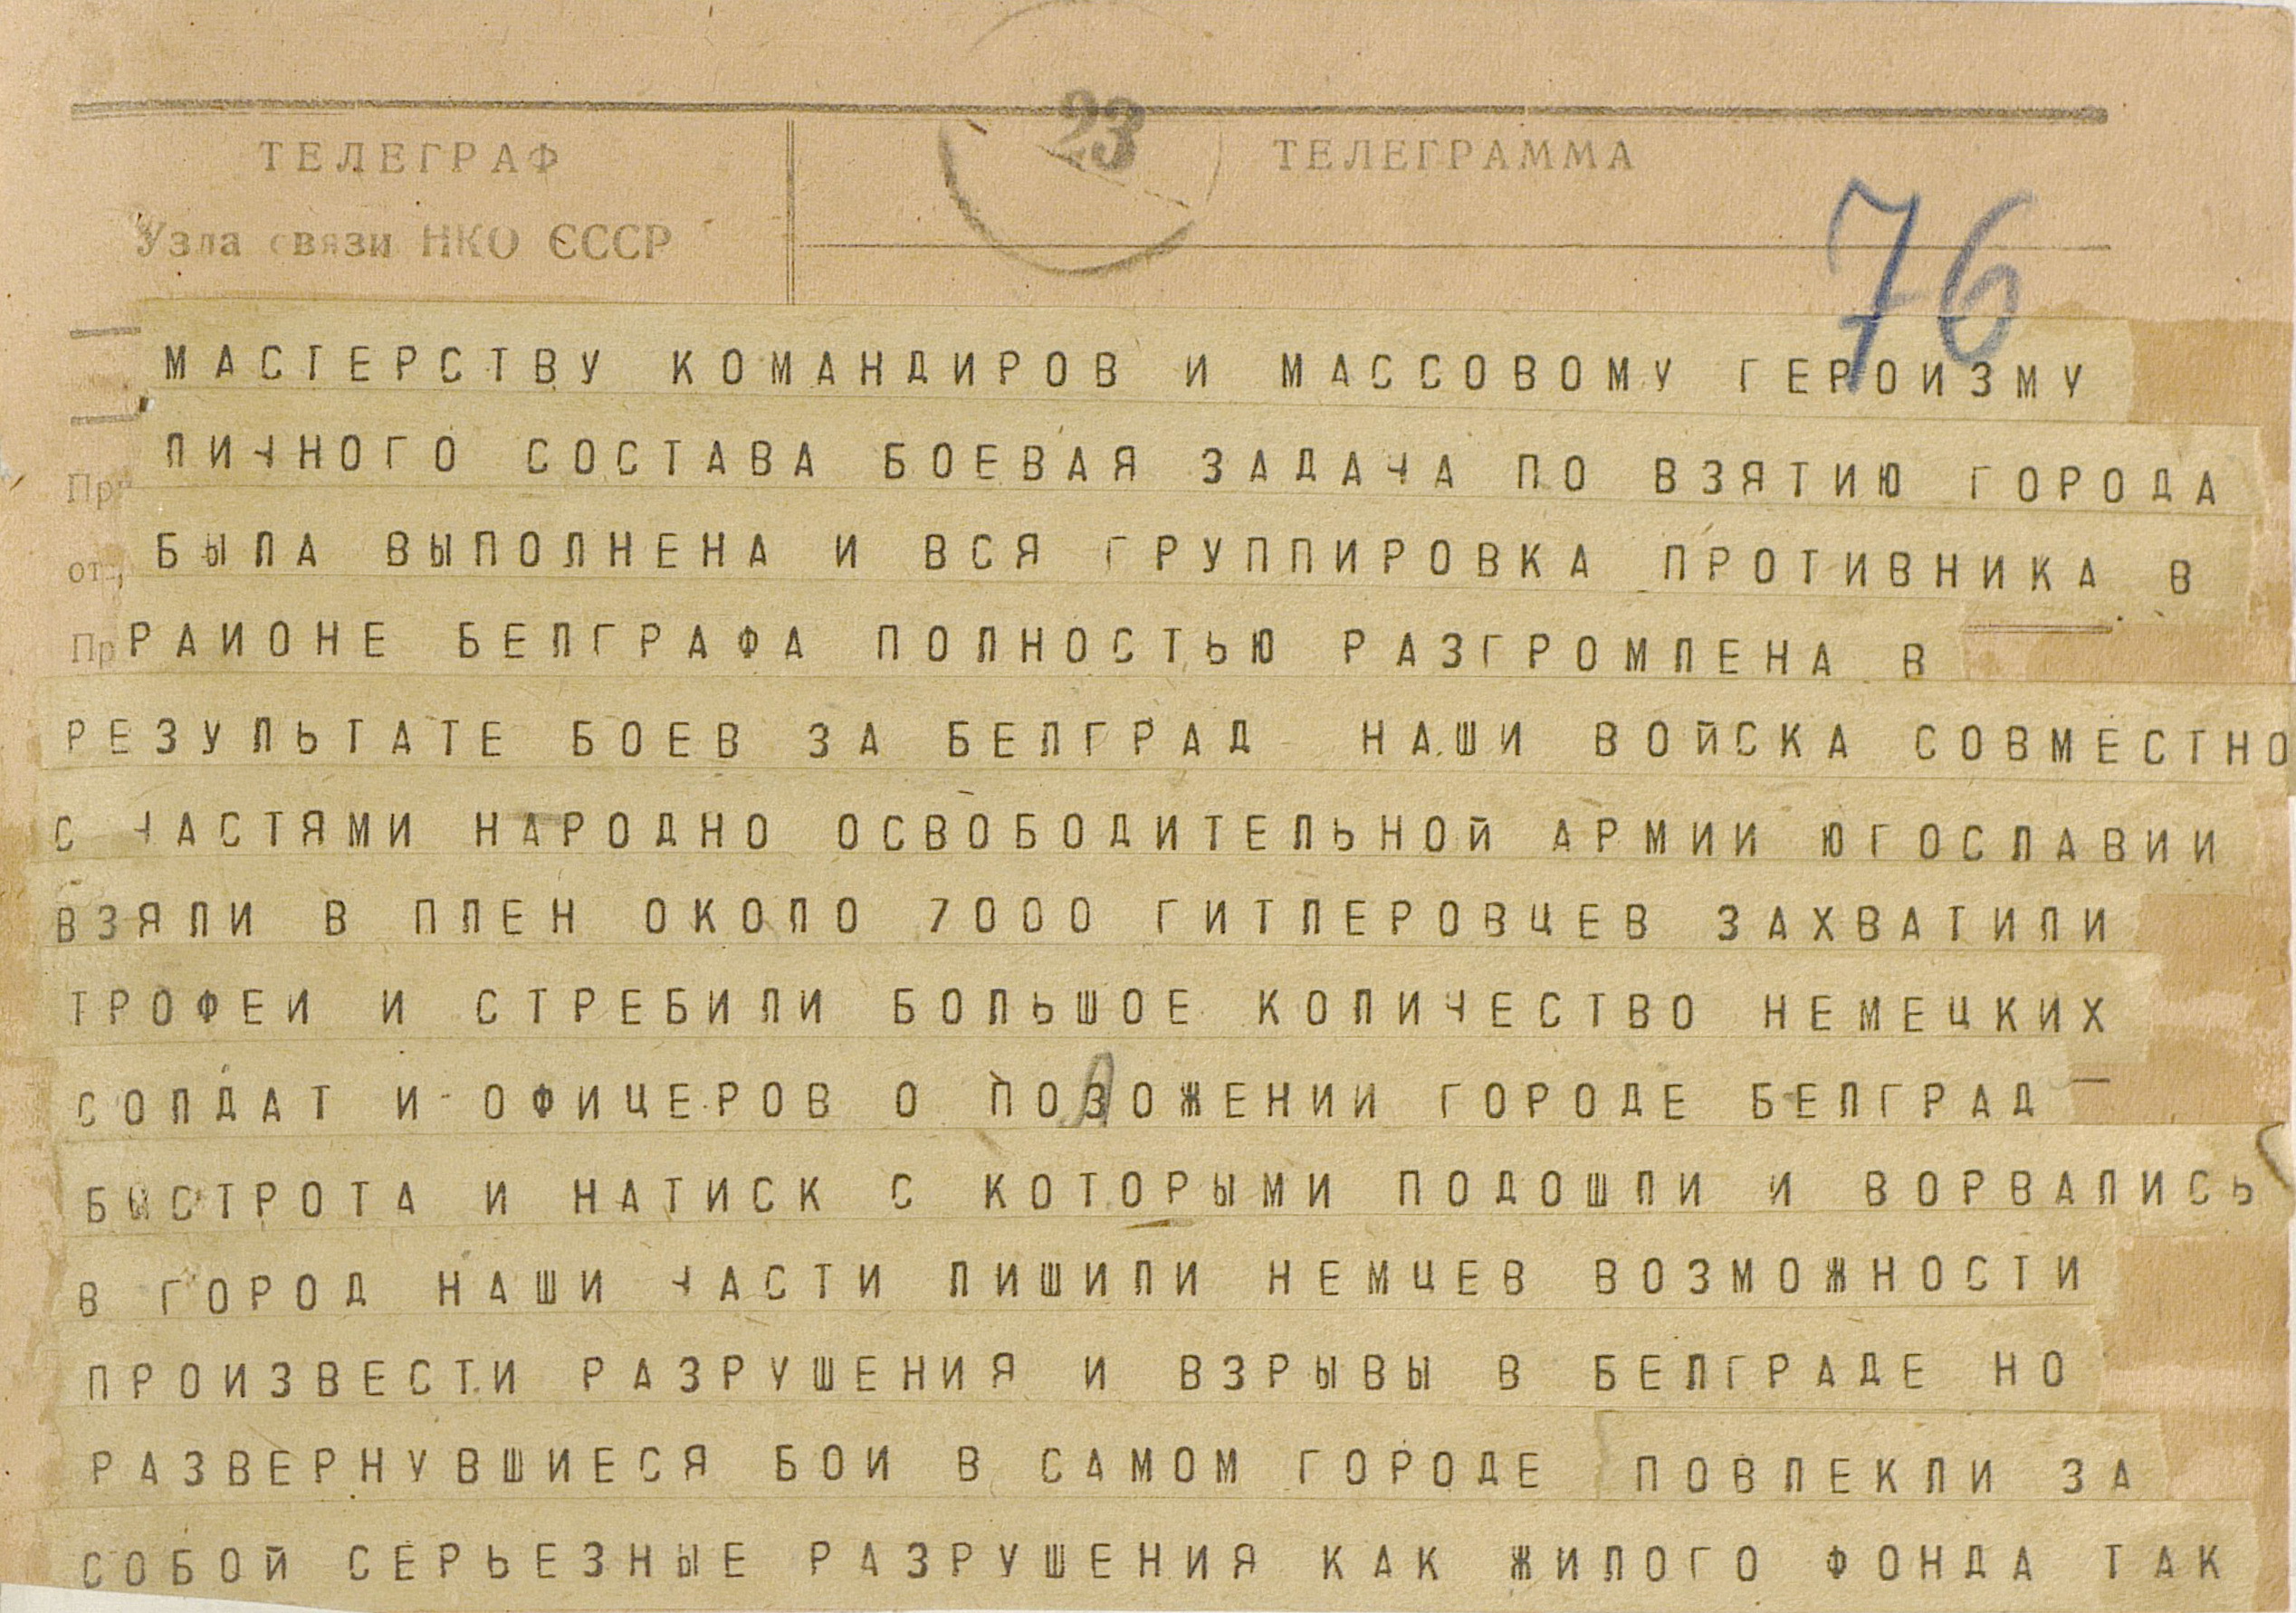 23
ТЕЛЕГРАФ
ТЕЛЕГРАММА
Узла связи НКО СССР
76
МАСТЕРСТВУ КОМАНДИРОВ И МАССОВОМУ ГЕРОИЗМУ
ЛИЧНОГО СОСТАВА БОЕВАЯ ЗАДАЧА ПО ВЗЯТИЮ ГОРОДА
БЫЛА ВЫПОЛНЕНА И ВСЯ ГРУППИРОВКА ПРОТИВНИКА В
РАИОНЕ БЕЛГРАФА ПОЛНОСТЬЮ РАЗГРОМЛЕНА В
РЕЗУЛЬТАТЕ БОЕВ ЗА БЕЛГРАД НАШИ ВОЙСКА СОВМЕСТНО
С ЧАСТЯМИ НАРОДНО ОСВОБОДИТЕЛЬНОЙ АРМИИ ЮГОСЛАВИИ
ВЗЯЛИ В ПЛЕН ОКОЛО 7000 ГИТЛЕРОВЦЕВ ЗАХВАТИЛИ
ТРОФЕИ И СТРЕБИЛИ БОЛЬШОЕ КОЛИЧЕСТВО НЕМЕЦКИХ
СОЛДАТ И ОФИЦЕРОВ О ПОЛОЖЕНИИ ГОРОДЕ БЕЛГРАД
БЫСТРОТА И НАТИСК С КОТОРЫМИ ПОДОШЛИ И ВОРВАЛИСЬ
В ГОРОД НАШИ ЧАСТИ ЛИШИЛИ НЕМЦЕВ ВОЗМОЖНОСТИ
ПРОИЗВЕСТИ РАЗРУШЕНИЯ И ВЗРЫВЫ В БЕЛГРАДЕ НО
РАЗВЕРНУВШИЕСЯ БОИ В САМОМ ГОРОДЕ ПОВЛЕКЛИ ЗА
СОБОЙ СЕРЬЕЗНЫЕ РАЗРУШЕНИЯ КАК ЖИЛОГО ФОНДА ТАК